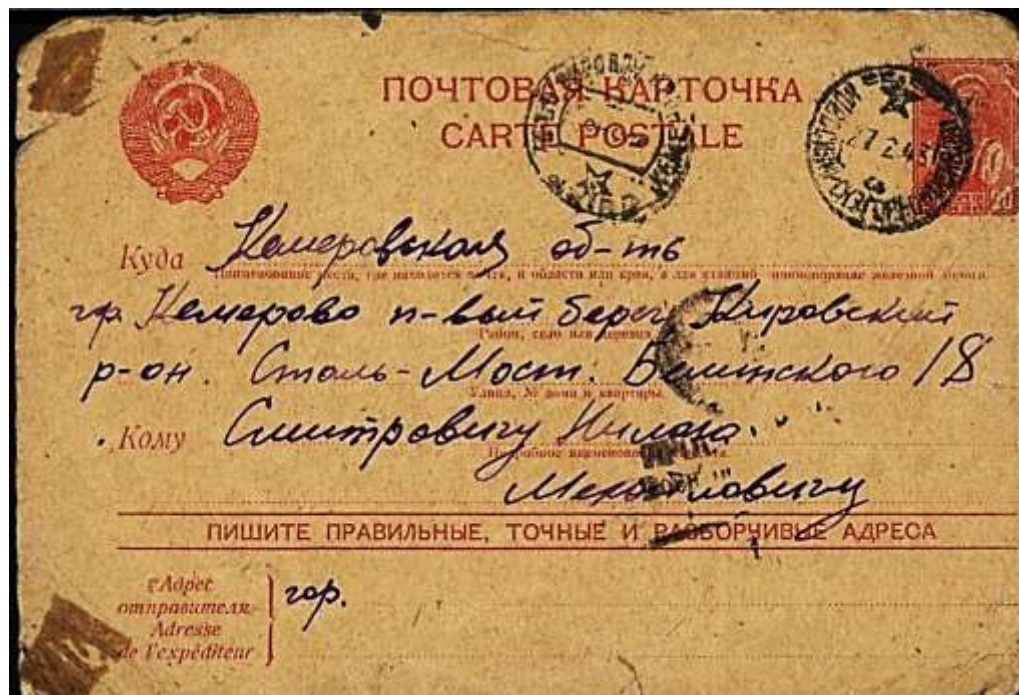 ПОЧТОВАЯ КАРТОЧКА
CARTE POSTALE
27 2 43
Куда Кемеровская об-ть
наименование места, где находится почта, и области или края, а для станций наименование железной дороги
гор. Кемерово п-вый берег Кировский
Район, село или деревня
р-он. Сталь-Мост. Белинского 18
Улица, № дома и квартиры.
Кому Смитровичу
Подробное наименование
ПИШИТЕ ПРАВИЛЬНЫЕ, ТОЧНЫЕ И РАЗБОРЧИВЫЕ АДРЕСА
Адрес отправителя
Adresse de l'expéditeur
гор.